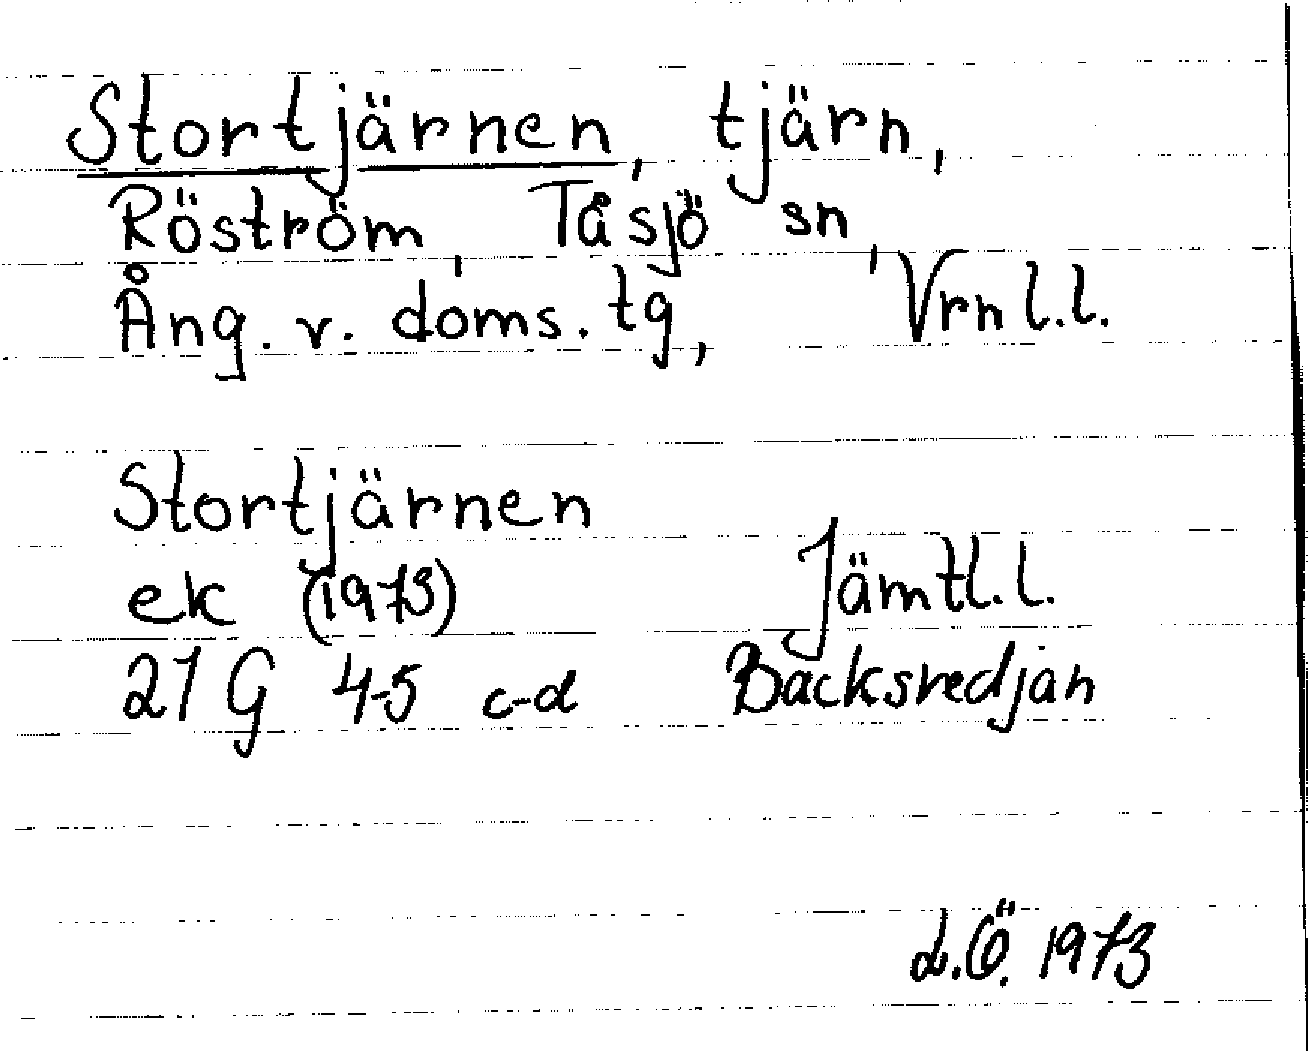 Stortjärnen, tjärn,
Röström, Tåsjö sn,
Ång. v. doms. tg, Vrn l.l.
Stortjärnen
ek (1973) Jämtl.l.
21 G 4-5 c-d Backsvedjan
L.Ö. 1973